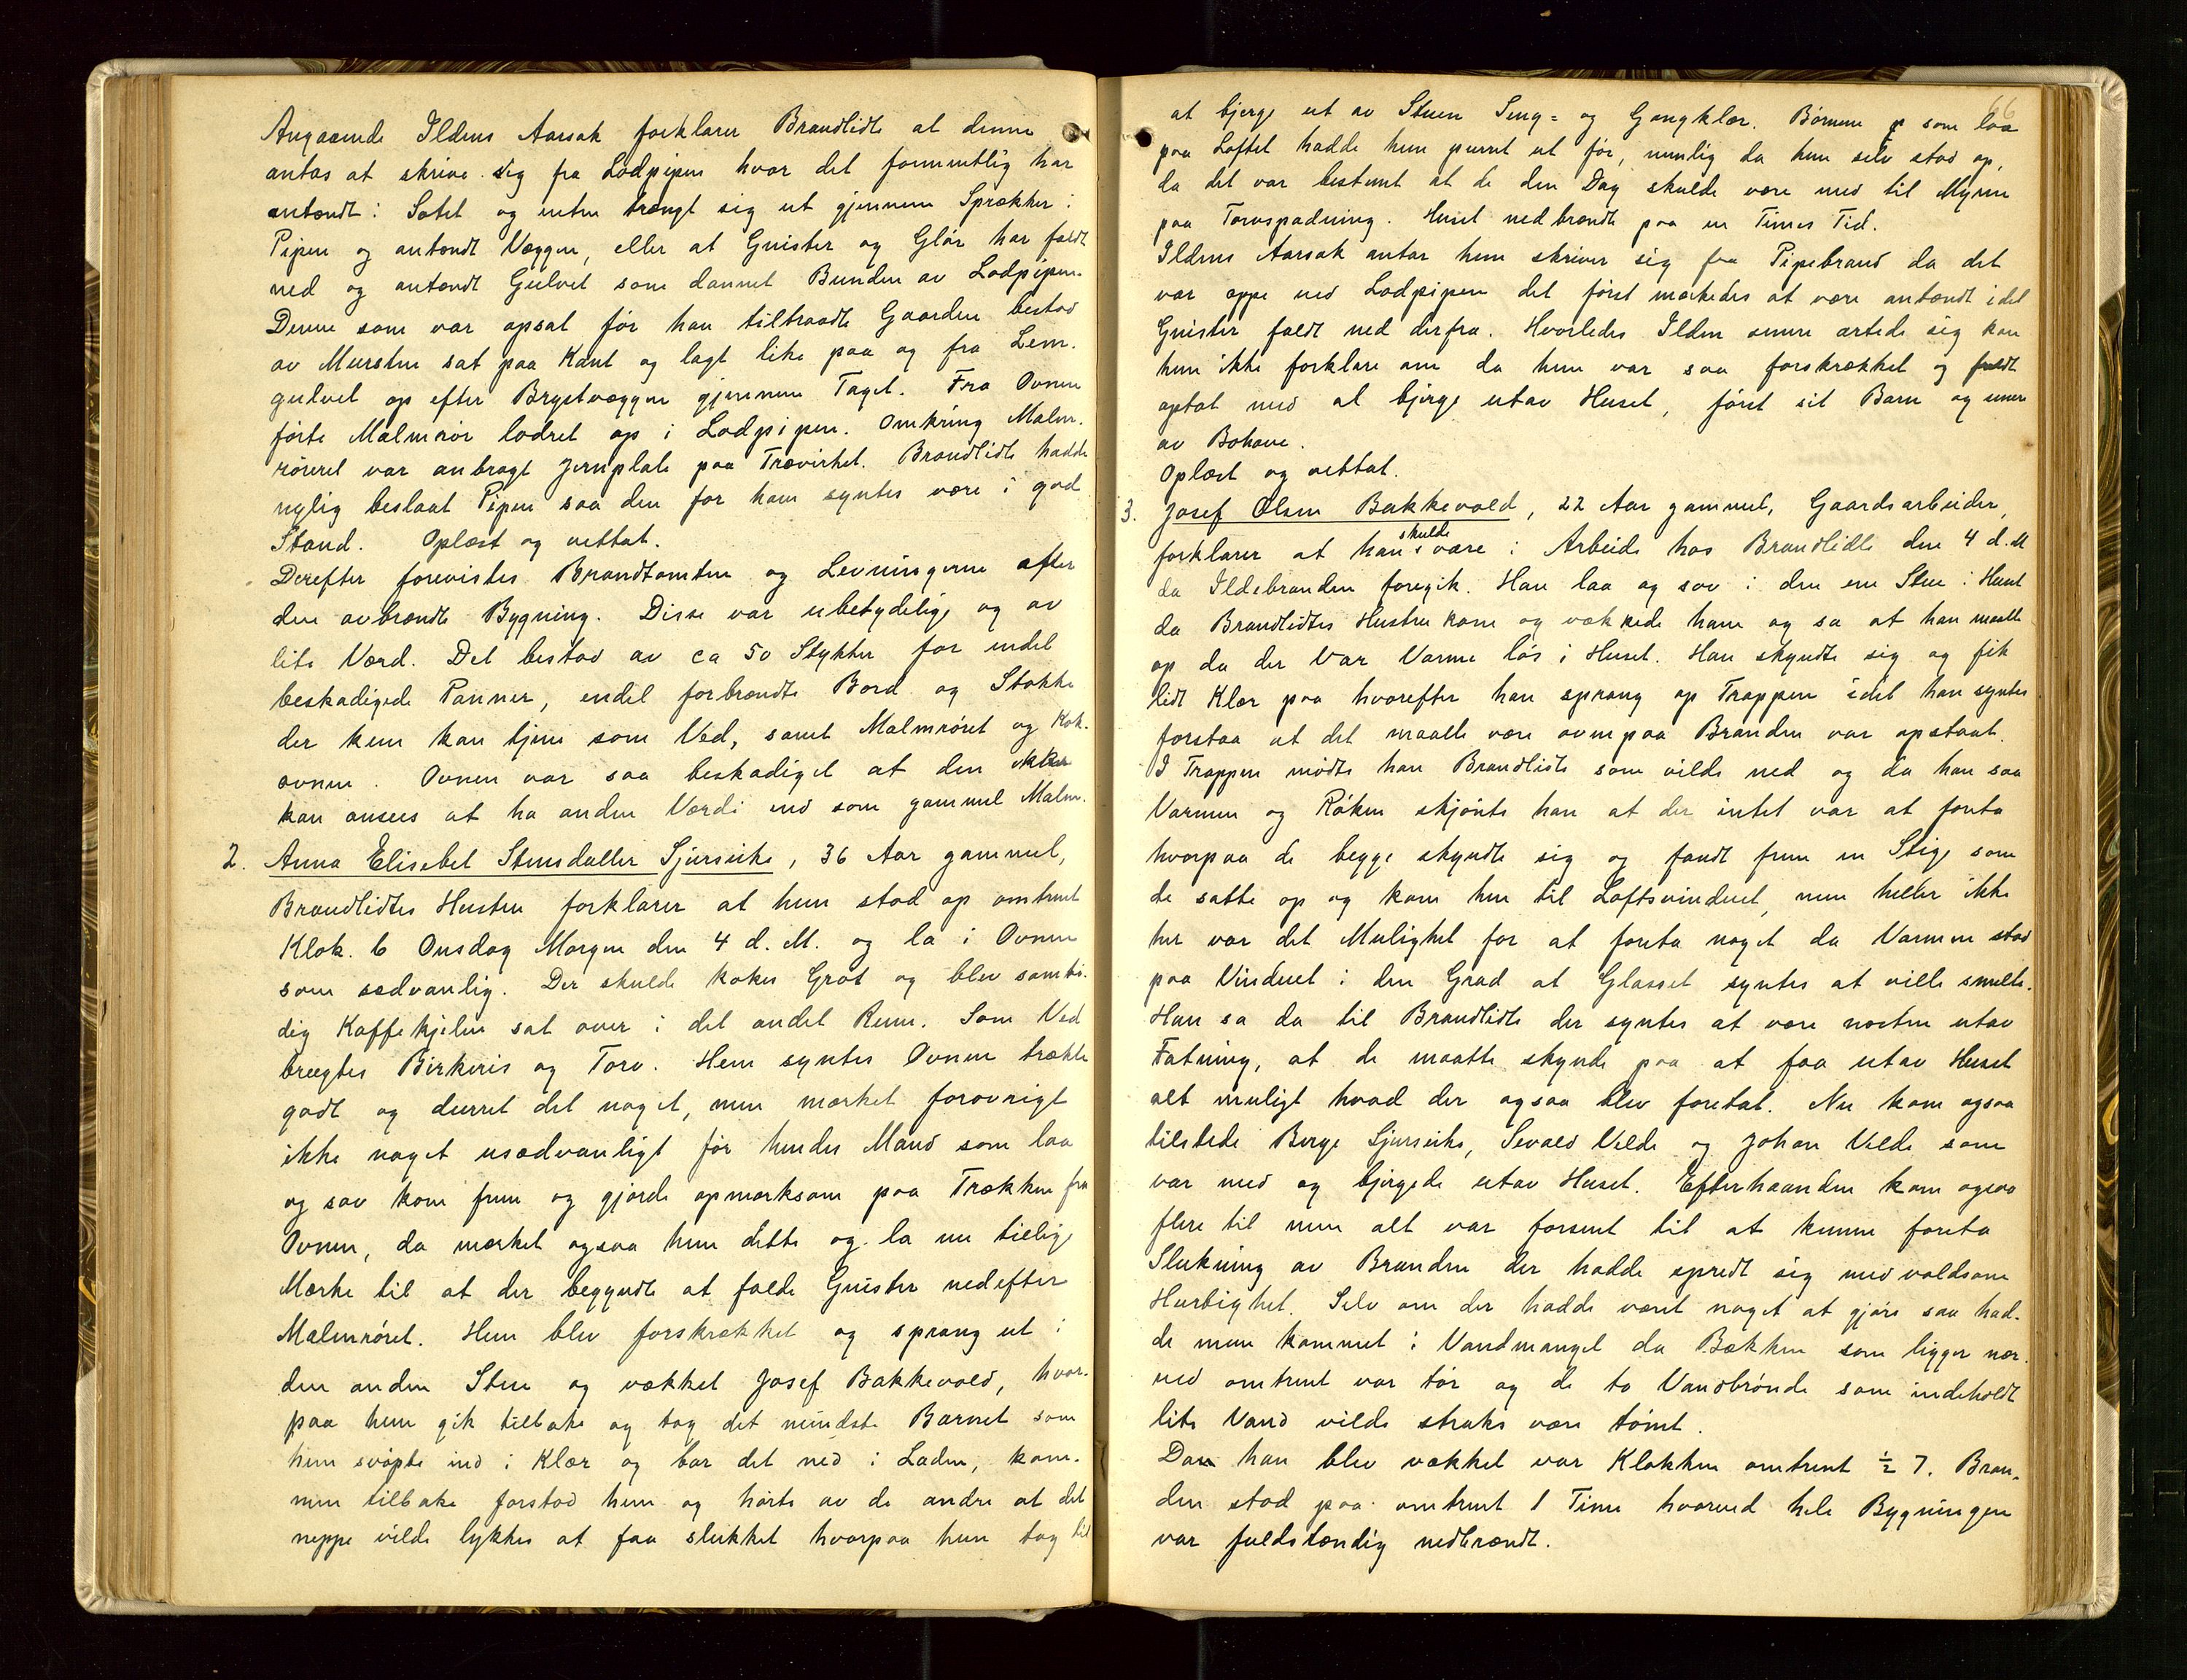 Angaaende Ildens Aarsak forklarer Brandlidte at denne
antas at skrive sig fra Lodpipen hvor det formentlig har
antændt i Sotet og enten trængt sig ut gjennem Sprækker i
Pipen og antændt Væggen, eller at Gnister og Glør har faldt
ned og antændt Gulvet som dannet Bunden av Lodpipen.
Denne som var opsat før han tiltraadte Gaarden bestod
av Mursten sat paa Kant og lagt like paa og fra Lem-
gulvet op efter Brystvæggen gjennem Taget. Fra Ovnen
førte Malmrør lodret op i Lodpipen. Omkring Malm-
røret var anbragt Jernplate paa Trævirket. Brandlidte hadde
nylig beslaat Pipen saa den for ham syntes være i god
Stand. Oplæst og vettat.
Derefter forevistes Brandtomten og Levningerne efter
den avbrændte Bygning. Disse var ubetydelige og av
lite Værd. Det bestod av ca 50 Stykker for endel
beskadigede Panner, endel forbrændte Bord og Stokke
der kun kan tjene som Ved, samt Malmrøret og Kok-
ovnen. Ovnen var saa beskadiget at den ikke
kan ansees at ha anden Værdi end som gammel Malm.
2. Anna Elisebet Stensdatter Sjurseike, 36 Aar gammel,
Brandlidtes Hustru forklarer at hun stod op omtrent
Klok. 6 Onsdag Morgen den 4 d. M. og la i Ovnen
som sædvanlig. Der skulde kokes Grøt og blev samti-
dig Kaffekjelen sat over i det andet Rum. Som Ved
brugtes Birkeris og Torv. Hun syntes Ovnen trækte
godt og durret det noget, men merket forøvrigt
ikke noget usædvanligt før hendes Mand som laa
og sov kom frem og gjorde opmerksom paa Trækken fra
Ovnen, da merket ogsaa hun dette og la nu tielige
Merke til at der begyndte at falde Gnister nedefter
Malmrøret. Hun blev forskrækket og sprang ut i
den anden Stue og vækket Josef Bakkevold, hvor-
paa hun gik tilbake og tog det mindste Barnet som
hun svøpte ind i Klær og bar det ned i Laden, kom-
men tilbake forstod hun og hørte av de andre at det
neppe vilde lykkes at faa slukket hvorpaa hun tog til
66
at bjerge ut av Stuen Seng= og Gangklær. Børnene som laa
paa Loftet hadde hun purret ut før, nemlig da hun selv stod op,
da det var bestemt at de den Dag skulde være med til Myren
paa Torvspadning. Huset nedbrændte paa en Times Tid.
Ildens Aarsak antar hun skriver sig fra Pipebrand da det
var oppe ved Lodpipen det først merkedes at være antændt idet
Gnister faldt ned derfra. Hvorledes Ilden senere artede sig kan
hun ikke forklare om da hun var saa forskrækket og fuldt
optat med at bjerge utav Huset, først sit Barn og senere
av Bohave.
Oplæst og vettat.
3. Josef Olsen Bakkevold, 22 Aar gammel, Gaardsarbeider,
skulde
forklarer at han være i Arbeide hos Brandlidte den 4 d. M
da Ildebranden foregik. Han laa og sov i den ene Stue i Huset
da Brandlidtes Hustru kom og vækkede ham og sa at han maatte
op da der var Varme løs i Huset. Han skyndte sig og fik
lidt Klær paa hvorefter han sprang op Trappen idet han syntes
forstaa at det maatte være ovenpaa Branden var opstaat.
I Trappen mødte han Brandlidte som vilde ned og da han saa
Varmen og Røken skjønte han at der intet var at foreta
hvorpaa de begge skyndte sig og fandt frem en Stige som
de satte op og kom hen til Loftsvinduet, men heller ikke
her var det Mulighet for at foreta noget da Varmen stod
paa Vinduet i den Grad at Glasset syntes at ville smelte.
Han sa da til Brandlidte der syntes at være næsten utav
Fatning, at de maatte skynde paa at faa utav Huset
alt muligt hvad der ogsaa blev foretat. Nu kom ogsaa
tilstede Berge Sjurseike, Sevald Velde og Johan Velde som
var med og bjergede utav Huset. Efterhaanden kom ogsaa
flere til men alt var forsent til at kunne foreta
Slukning av Branden der hadde spredt sig med voldsom
Hurtighet. Selv om der hadde været noget at gjøre saa had-
de men kommet i Vandmangel da Bækken som ligger nær
ved omtrent var tør og de to Vandbrønde som indeholdt
lite Vand vilde straks være tømt.
Da han blev vækket var Klokken omtrent ½ 7. Bran-
den stod paa omtrent 1 Time hvorved hele Bygningen
var fuldstændig nedbrændt.